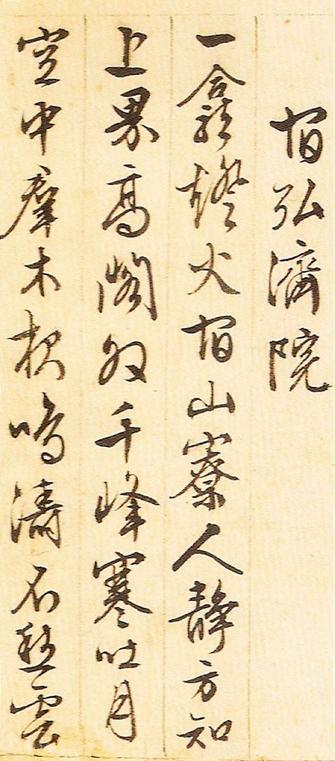 宿弘濟院
一龕燈火宿山寮人靜方知
上界高閣外千峰寒吐月
空中羣木鳴濤石雲